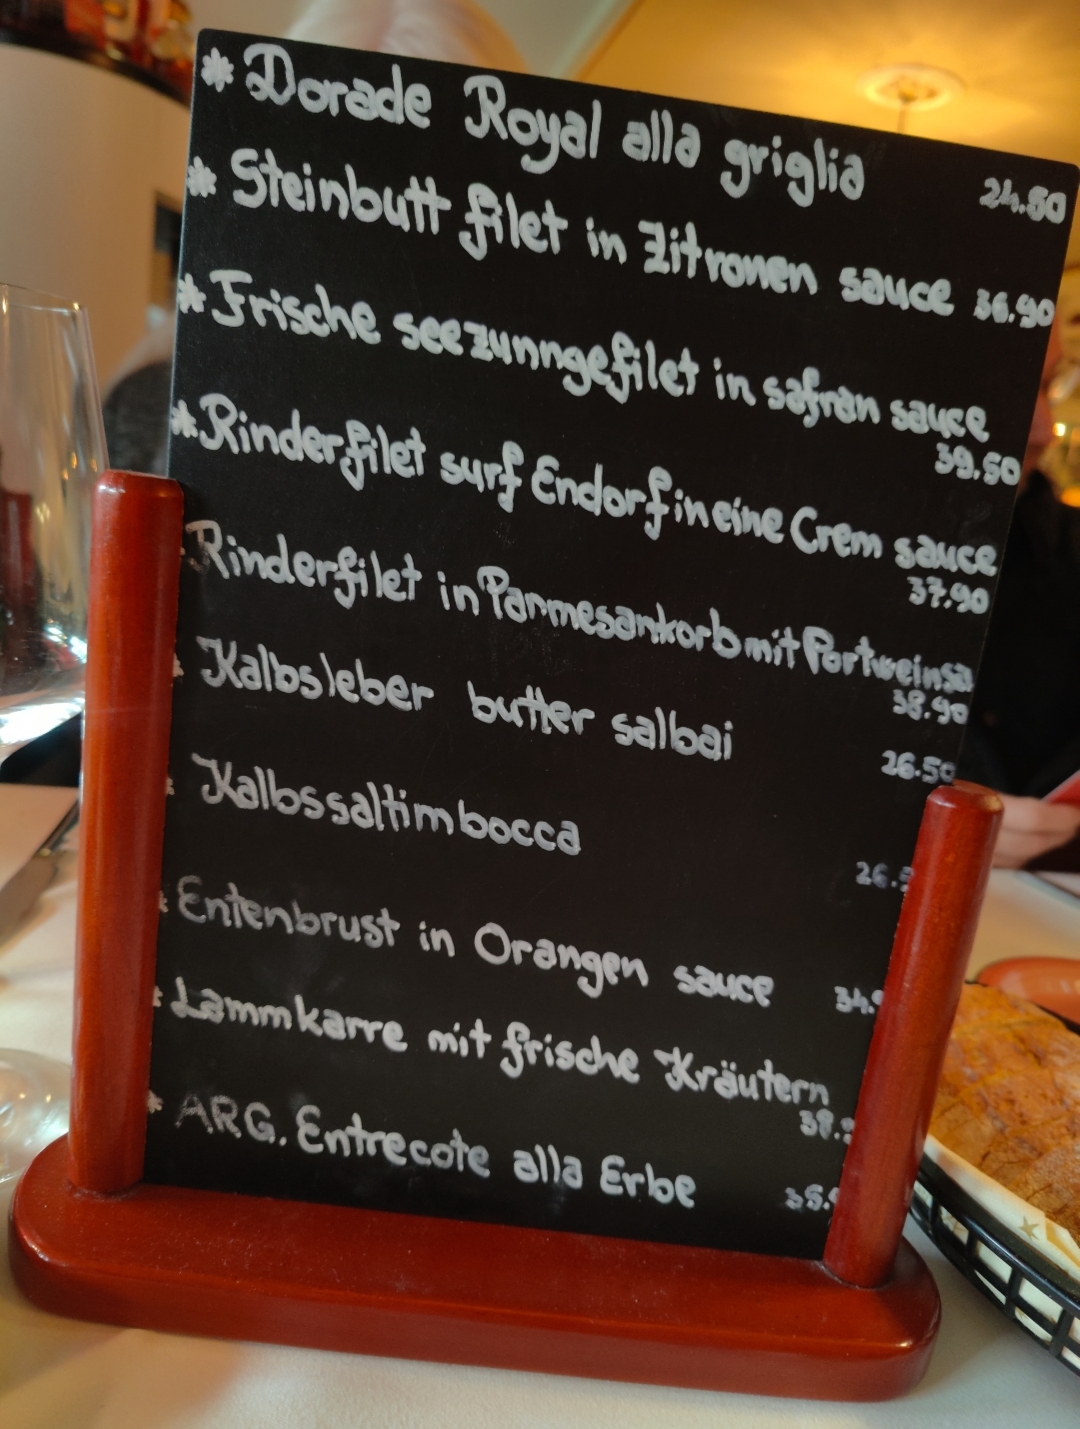 * Dorade Royal alla griglia 24.50
* Steinbutt filet in Zitronen sauce 36.90
* Frische seezunngefilet in safran sauce
39.50
* Rinderfilet surf Endorfineine Crem sauce
37.90
Rinderfilet in Parmesankorb mit Portweinsa
38.90
Kalbsleber butter salbai 26.50
Kalbssaltimbocca 26.5
* Entenbrust in Orangen sauce 34.9
* Lammkarre mit frische Kräutern
38.
* ARG. Entrecote alla Erbe